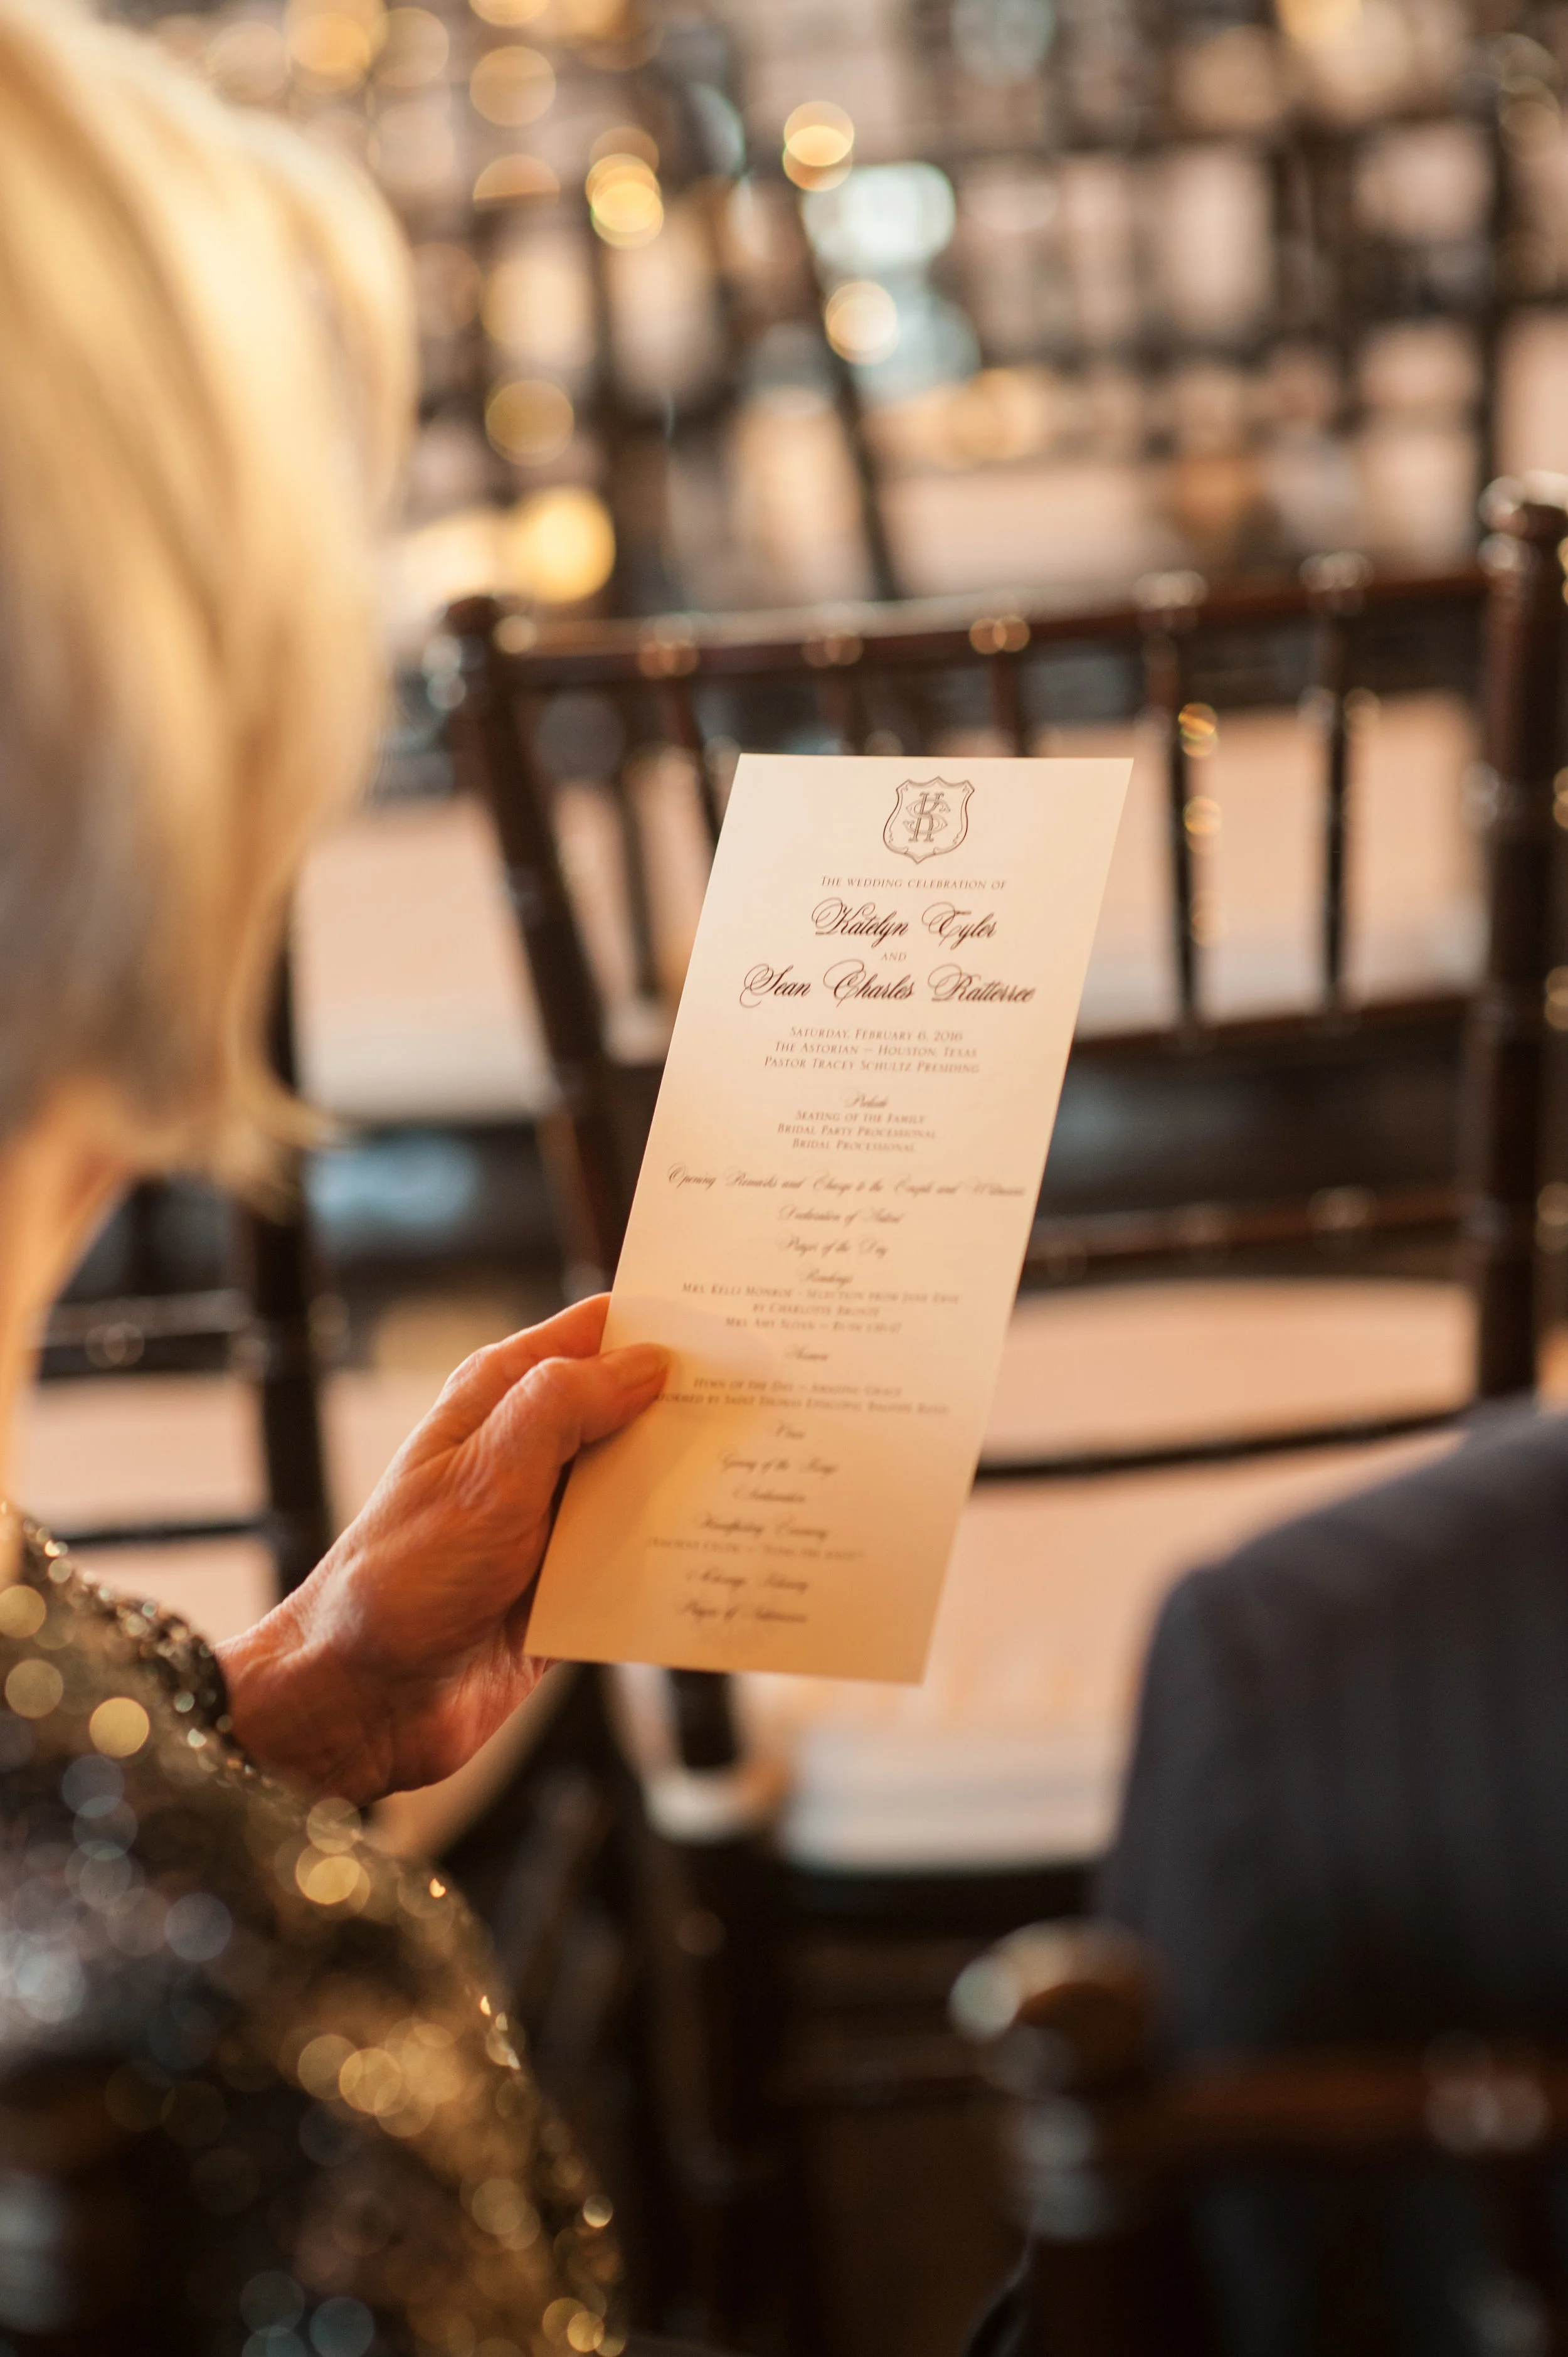 KS
THE WEDDING CELEBRATION OF
Katelyn Tyler
AND
Sean Charles Ratterree
SATURDAY, FEBRUARY 6, 2016
THE ASTORIAN — HOUSTON, TEXAS
PASTOR TRACEY SCHULTZ PRESIDING
Prelude
SEATING OF THE FAMILY
BRIDAL PARTY PROCESSIONAL
BRIDAL PROCESSIONAL
Opening Remarks and Charge to the Couple and Witnesses
Declaration of Intent
Prayer of the Day
Readings
MRS. KELLI MONROE – SELECTION FROM JANE EYRE
BY CHARLOTTE BRONTË
MRS. AMY SLOAN — RUTH
HYMN OF THE DAY — AMAZING GRACE
BY SAINT THOMAS EPISCOPAL BAGPIPE BAND
Vows
Giving of the Rings
Handfasting Ceremony
Marriage Blessing
Prayer of